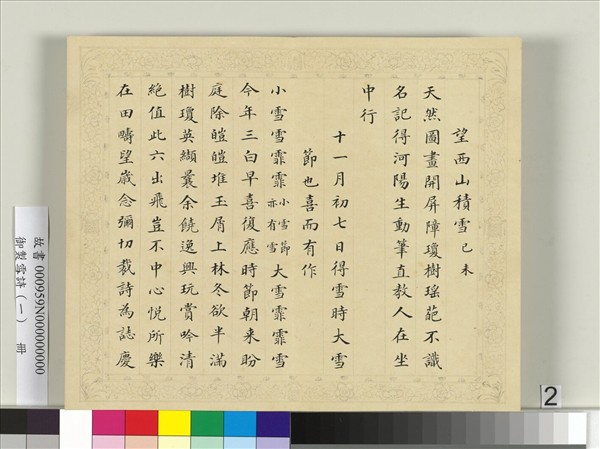 望西山積雪 己未
天然圖畫開屏障瓊樹瑤葩不識
名記得河陽生動筆直教人在坐
中行
十一月初七日得雪時大雪
節也喜而有作
小雪雪霏霏小雪節亦有雪大雪霏霏雪
今年三白早喜復應時節朝来盼
庭除皚皚堆玉屑上林冬欲半滿
樹瓊英纈曩余饒逸興玩賞吟清
絶值此六出飛豈不中心悅所樂
在田疇望歲念彌切裁詩為誌慶
故書 000959N000000000
御製雪詩（一） 冊
2